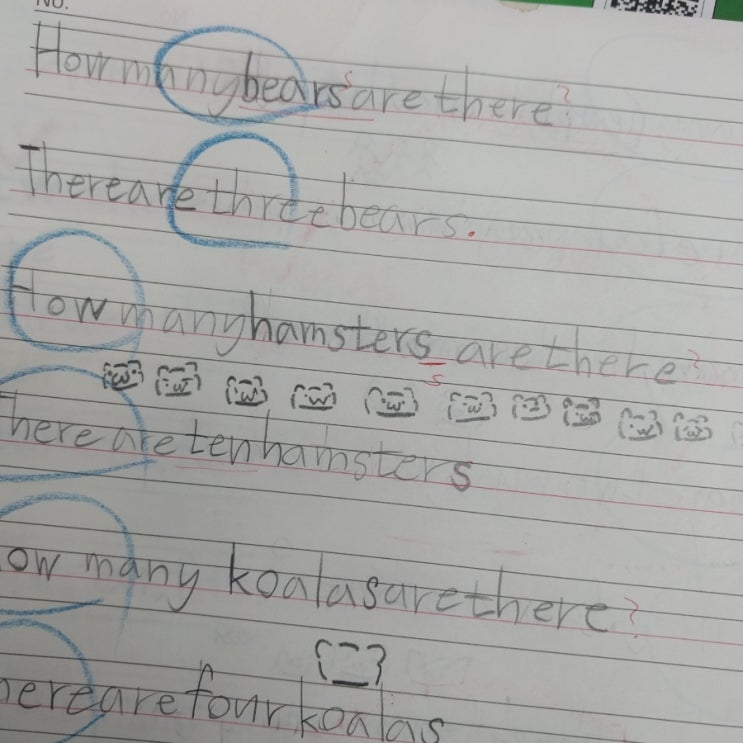 No.
How many bears are there?
There are three bears.
How many hamsters are there?
s
here are ten hamsters
ow many koalas are there?
here are four koalas